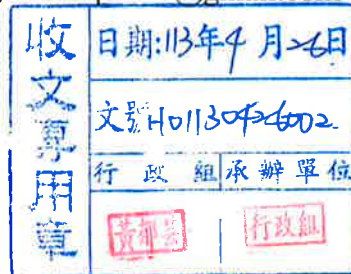 收文專用章
日期:113年4月26日
文號H01130426002
行政組 承辦單位
行政組